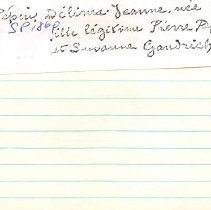 Pépin, Délima Jeanne, née
SP 186
fille légitime Pierre Pép
et Suzanne Gaudrich